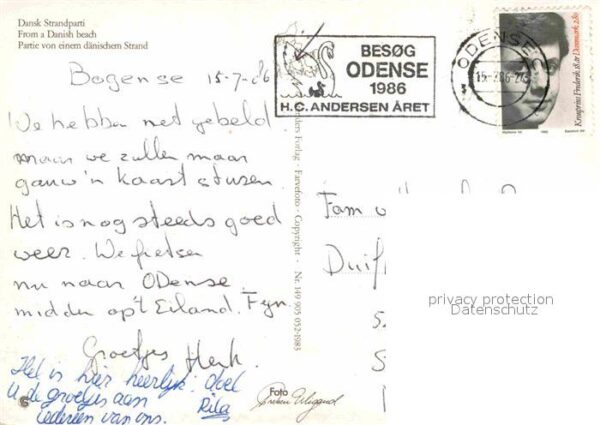 Dansk Strandparti
From a Danish beach
Partie von einem dänischem Strand
Bogense 15-7-86
We hebben net gebeld
maar we zullen maar
gauw 'n kaart sturen.
Het is nog steeds goed
weer. We fietsen
nu naar ODense
midden op't Eiland Fyn.
Groetjes Henk.
Het is hier heerlijk. doet
U de groetjes aan
iedereen van ons. Rita
BESØG
ODENSE
1986
H.C. ANDERSEN ÅRET
ODENSE
Kronprins Frederik 18 år Danmark 2.80
Forlag - Farvefoto - Copyright - Nr. 149 905 052-1983
Fam
Duif
privacy protection
Datenschutz
Foto